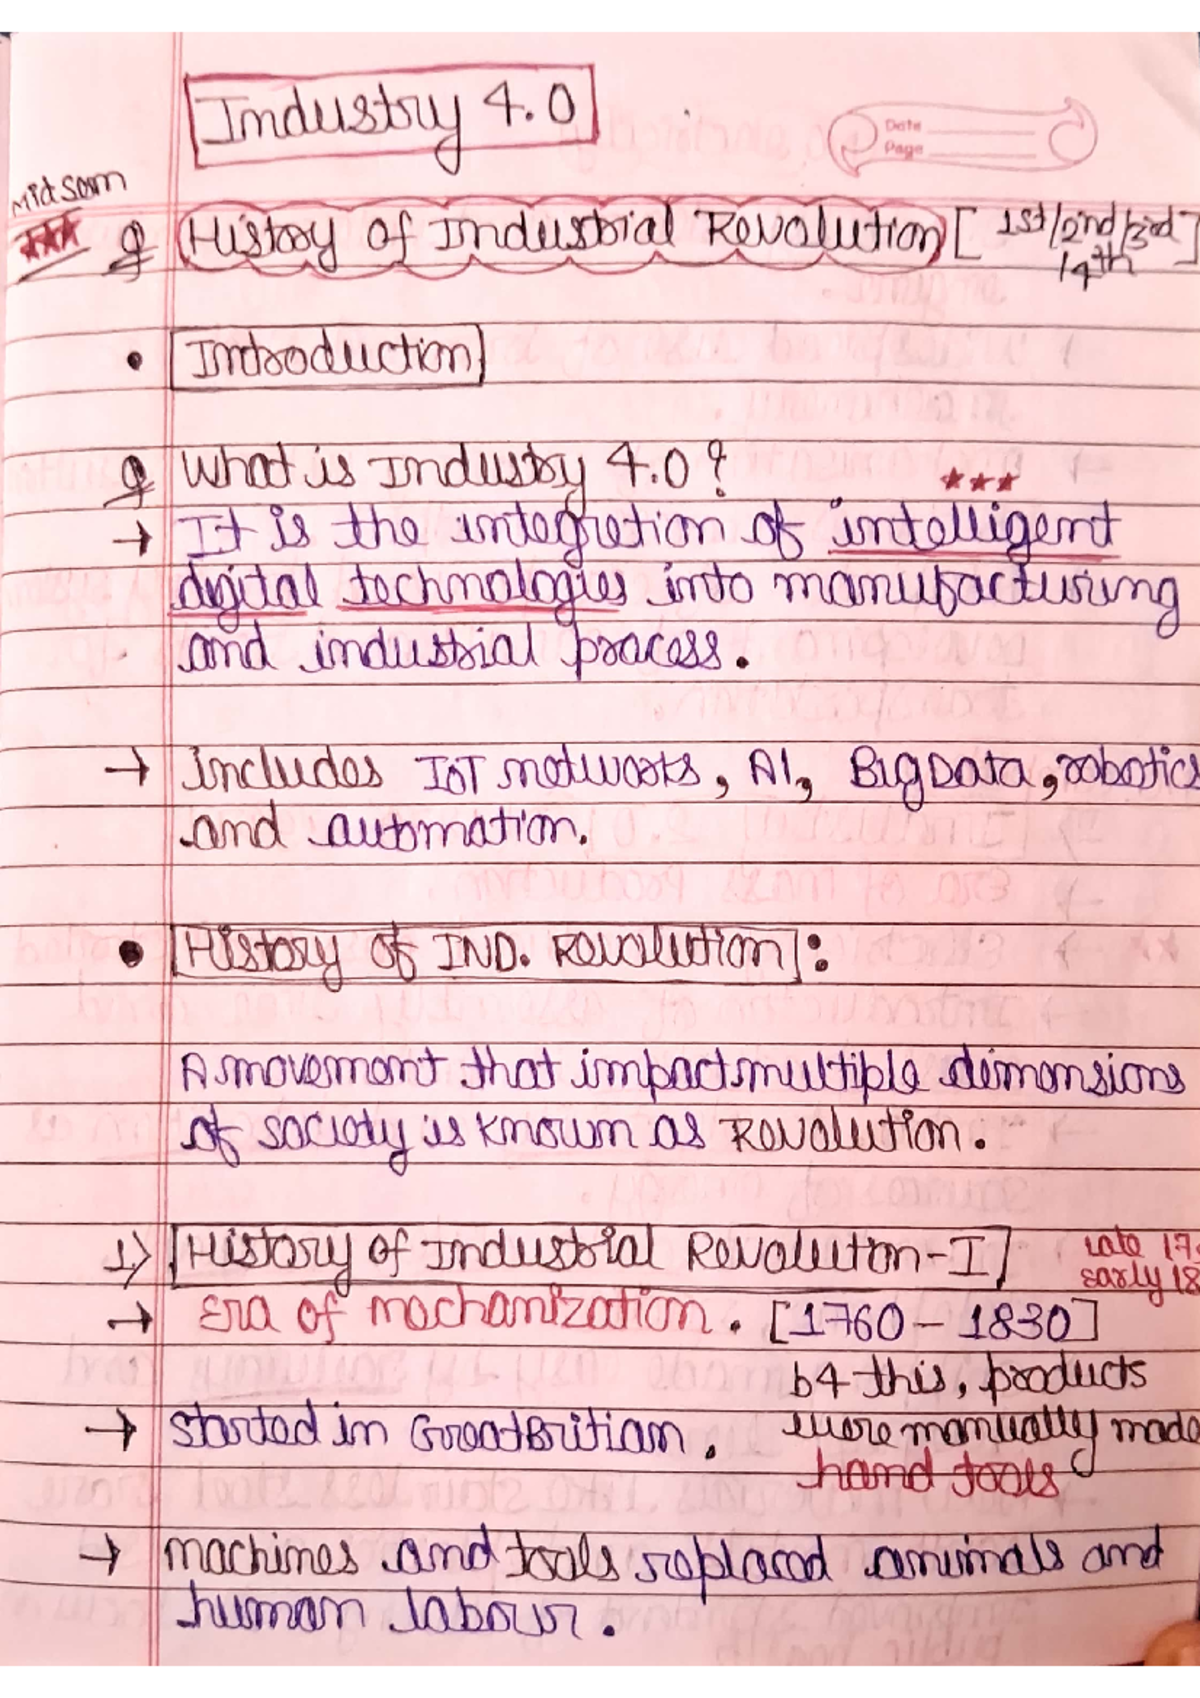 Industry 4.0
Date
Page
Mid sem
Q History of Industrial Revolution [1st/2nd/3rd
/4th]
• Introduction
Q What is Industry 4.0?
→ It is the integretion of intelligent
digital technologies into manufacturing
and industrial process.
→ includes IoT networks, AI, Big Data, robotics
and automation.
• History of IND. Revolution :
A movement that impact multiple dimensions
of society is known as Revolution.
1) History of Industrial Revolution-I
late 17
early 18
→ Era of mechanization. [1760 – 1830]
b4 this, products
→ started in Great Britian. were manually made
hand tools
→ machines and tools replaced animals and
human labour.